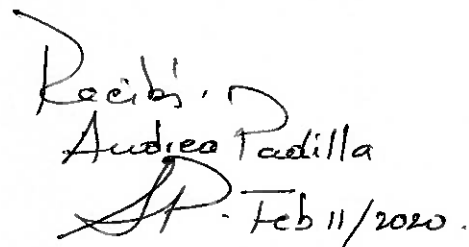 Recibí.
Andrea Padilla
AP. Feb 11/2020.